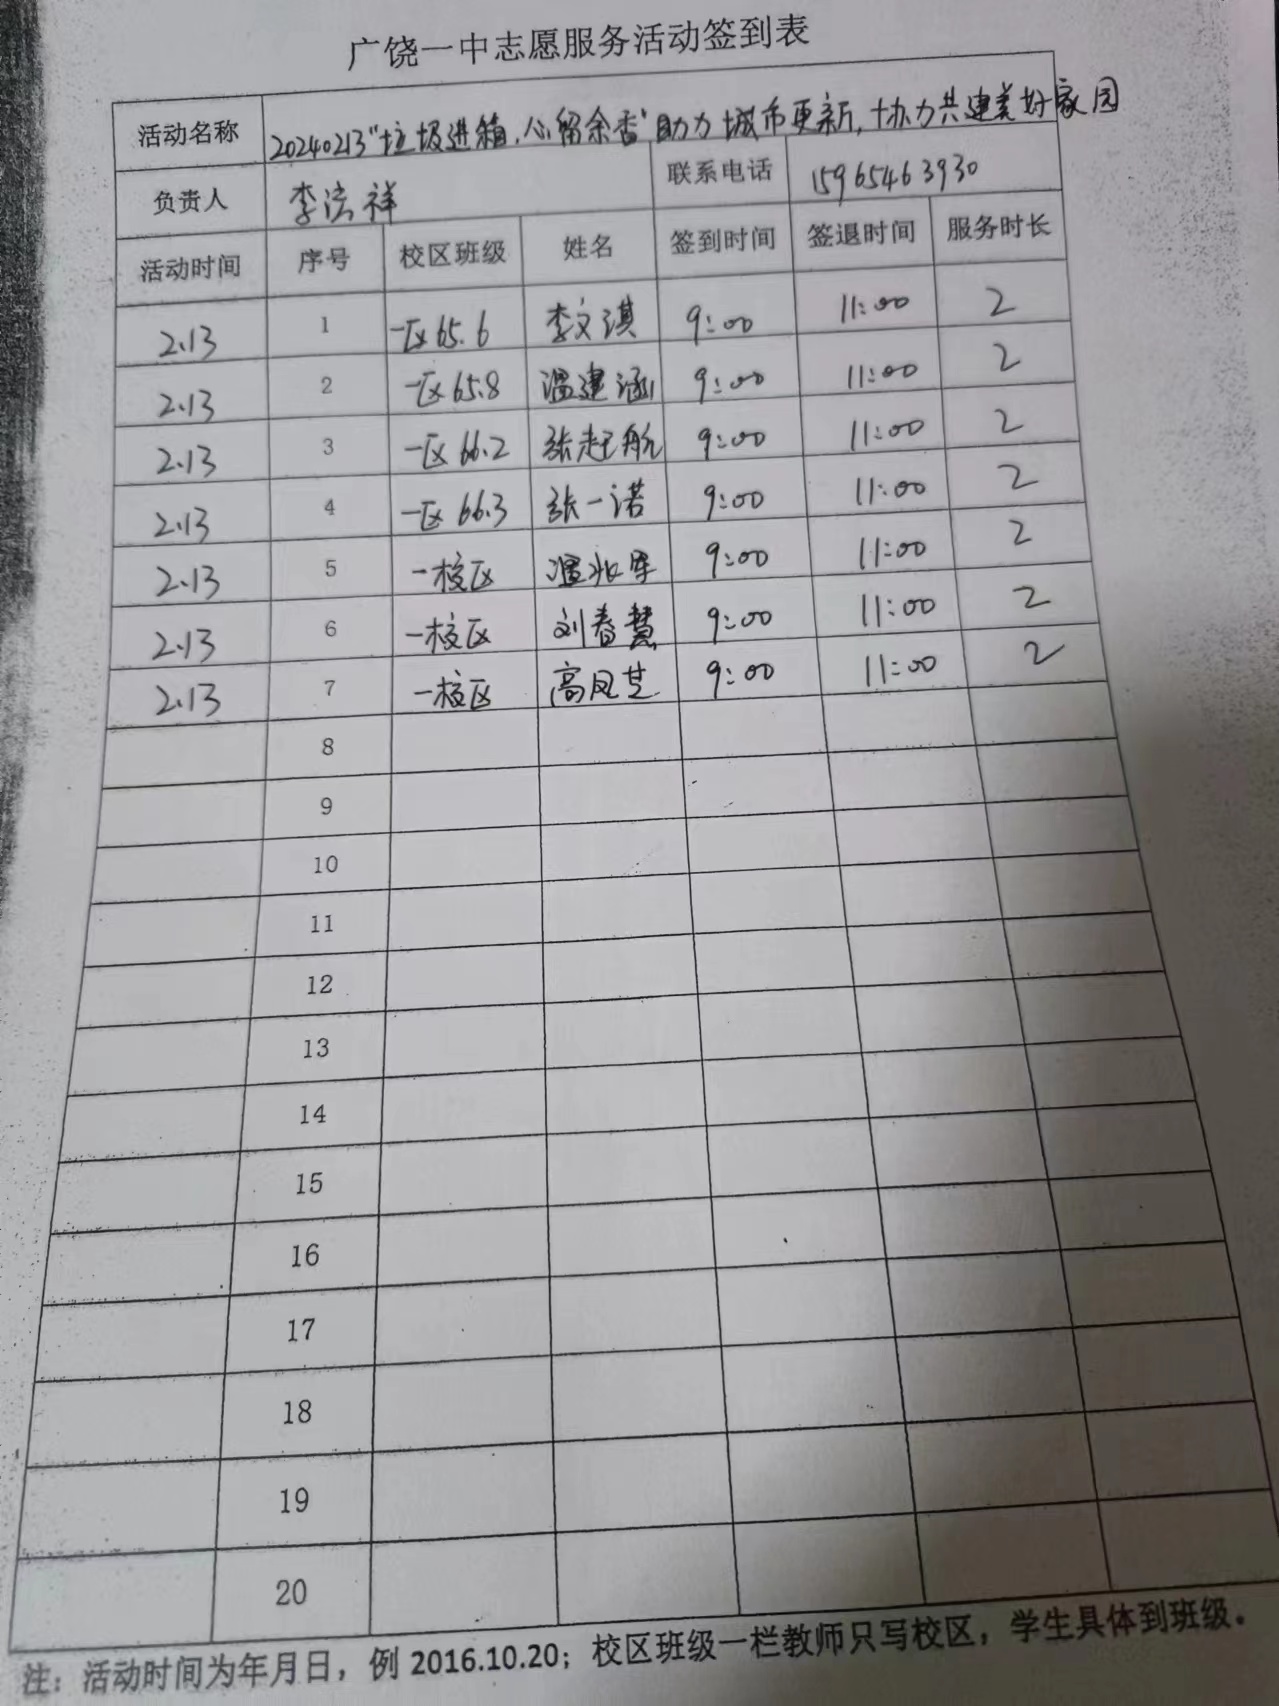 广饶一中志愿服务活动签到表
活动名称 20240213"垃圾进箱,心留余香"助力城市更新,协力共建美好家园
负责人 李洪祥 联系电话 15965463930
活动时间 序号 校区班级 姓名 签到时间 签退时间 服务时长
2.13 1 一区65.6 李文淇 9:00 11:00 2
2.13 2 一区65.8 温建涵 9:00 11:00 2
2.13 3 一区66.2 张起航 9:00 11:00 2
2.13 4 一区66.3 张一诺 9:00 11:00 2
2.13 5 一校区 温兆军 9:00 11:00 2
2.13 6 一校区 刘春慧 9:00 11:00 2
2.13 7 一校区 高凤芝 9:00 11:00 2
8
9
10
11
12
13
14
15
16
17
18
19
20
注:活动时间为年月日,例 2016.10.20;校区班级一栏教师只写校区,学生具体到班级。